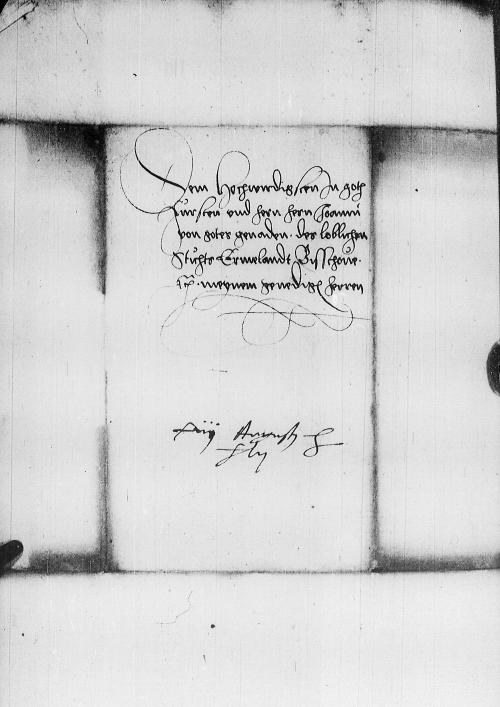 Dem Hochwerdigsten In goth
fursten vnd hern hern Joanni
von gotes genaden. des loblichen
Stichts Ermelandt Bisschoue.
meynem genedigen herren
Augusti